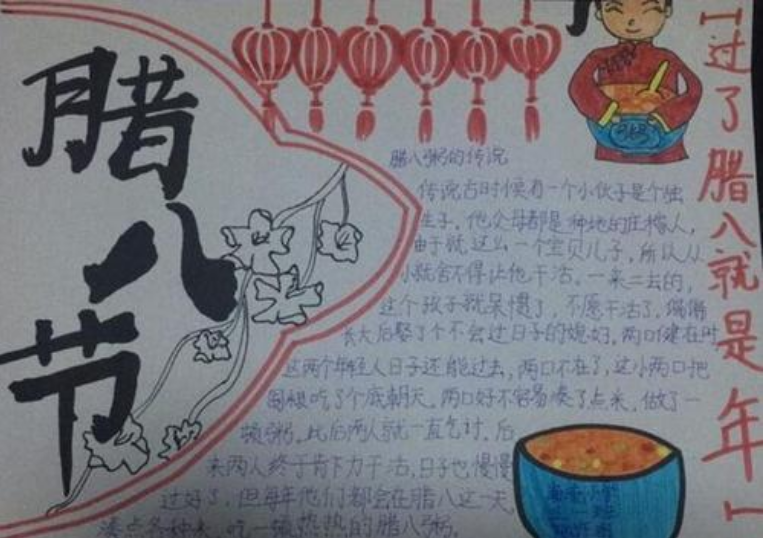 腊八节
【过了腊八就是年】
粥
腊八粥的传说
传说古时候有一个小伙子是个独
生子，他父母都是种地的庄稼人，
由于就这么一个宝贝儿子，所以从
小就舍不得让他干活。一来二去的，
这个孩子就呆惯了，不愿干活了，
长大后娶了个不会过日子的媳妇，两口健在时
这两个年轻人日子还能过去，两口不在了，这小两口把
吃了个底朝天。两口好不容易凑了点米，做了一
顿粥。此后两人就一直乞讨，后
来两人终于肯下力干活，日子也慢慢
过好了，但每年他们都会在腊八这一天，
凑点各种米，吃一顿热热的腊八粥。